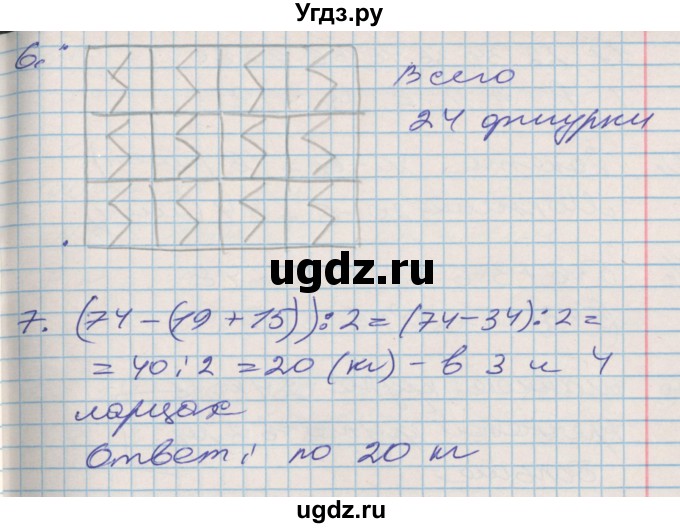 Угдз.ру
6.
Всего
24 фигурки
ugdz.ru
7. (74-(19+15)):2=(74-34):2=
=40:2=20 (кг)-в 3 и 4
ларцах
Ответ: по 20 кг
ugdz.ru